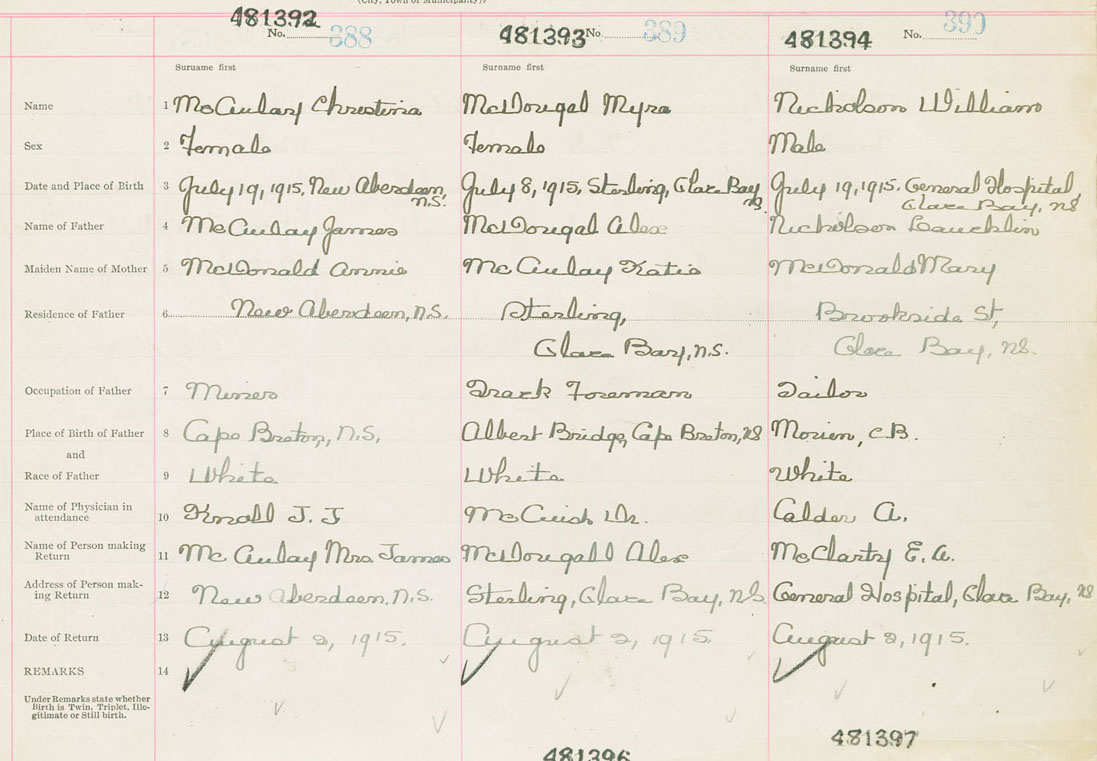 (City, Town or Municipality).
481392 No. 388
481393 No. 389
481394 No. 390
Surname first Surname first Surname first
Name 1 McAulay Christina McDougal Myra Nicholson William
Sex 2 Female Female Male
Date and Place of Birth 3 July 19, 1915, New Aberdeen, N.S. July 8, 1915, Sterling, Glace Bay NS. July 19, 1915. General Hospital, Glace Bay, NS
Name of Father 4 McAulay James McDougal Alex Nicholson Lauchlin
Maiden Name of Mother 5 McDonald Annie McAulay Katie McDonald Mary
Residence of Father 6 New Aberdeen, N.S. Sterling, Brookside St,
Glace Bay, N.S. Glace Bay, NS.
Occupation of Father 7 Miner Track Foreman Tailor
Place of Birth of Father 8 Cape Breton, N.S, Albert Bridge, Cape Breton, NS Morien, C.B.
and
Race of Father 9 White White White
Name of Physician in
attendance 10 J. J McCuish Dr. Calder A.
Name of Person making
Return 11 McAulay Mrs. James McDougall Alex McClarty E. A.
Address of Person mak-
ing Return 12 New Aberdeen, N.S. Sterling, Glace Bay, N.S. General Hospital, Glace Bay, NS
Date of Return 13 August 2, 1915. August 2, 1915. August 2, 1915.
REMARKS 14
Under Remarks state whether
Birth is Twin, Triplet, Ille-
gitimate or Still birth.
481396 481397